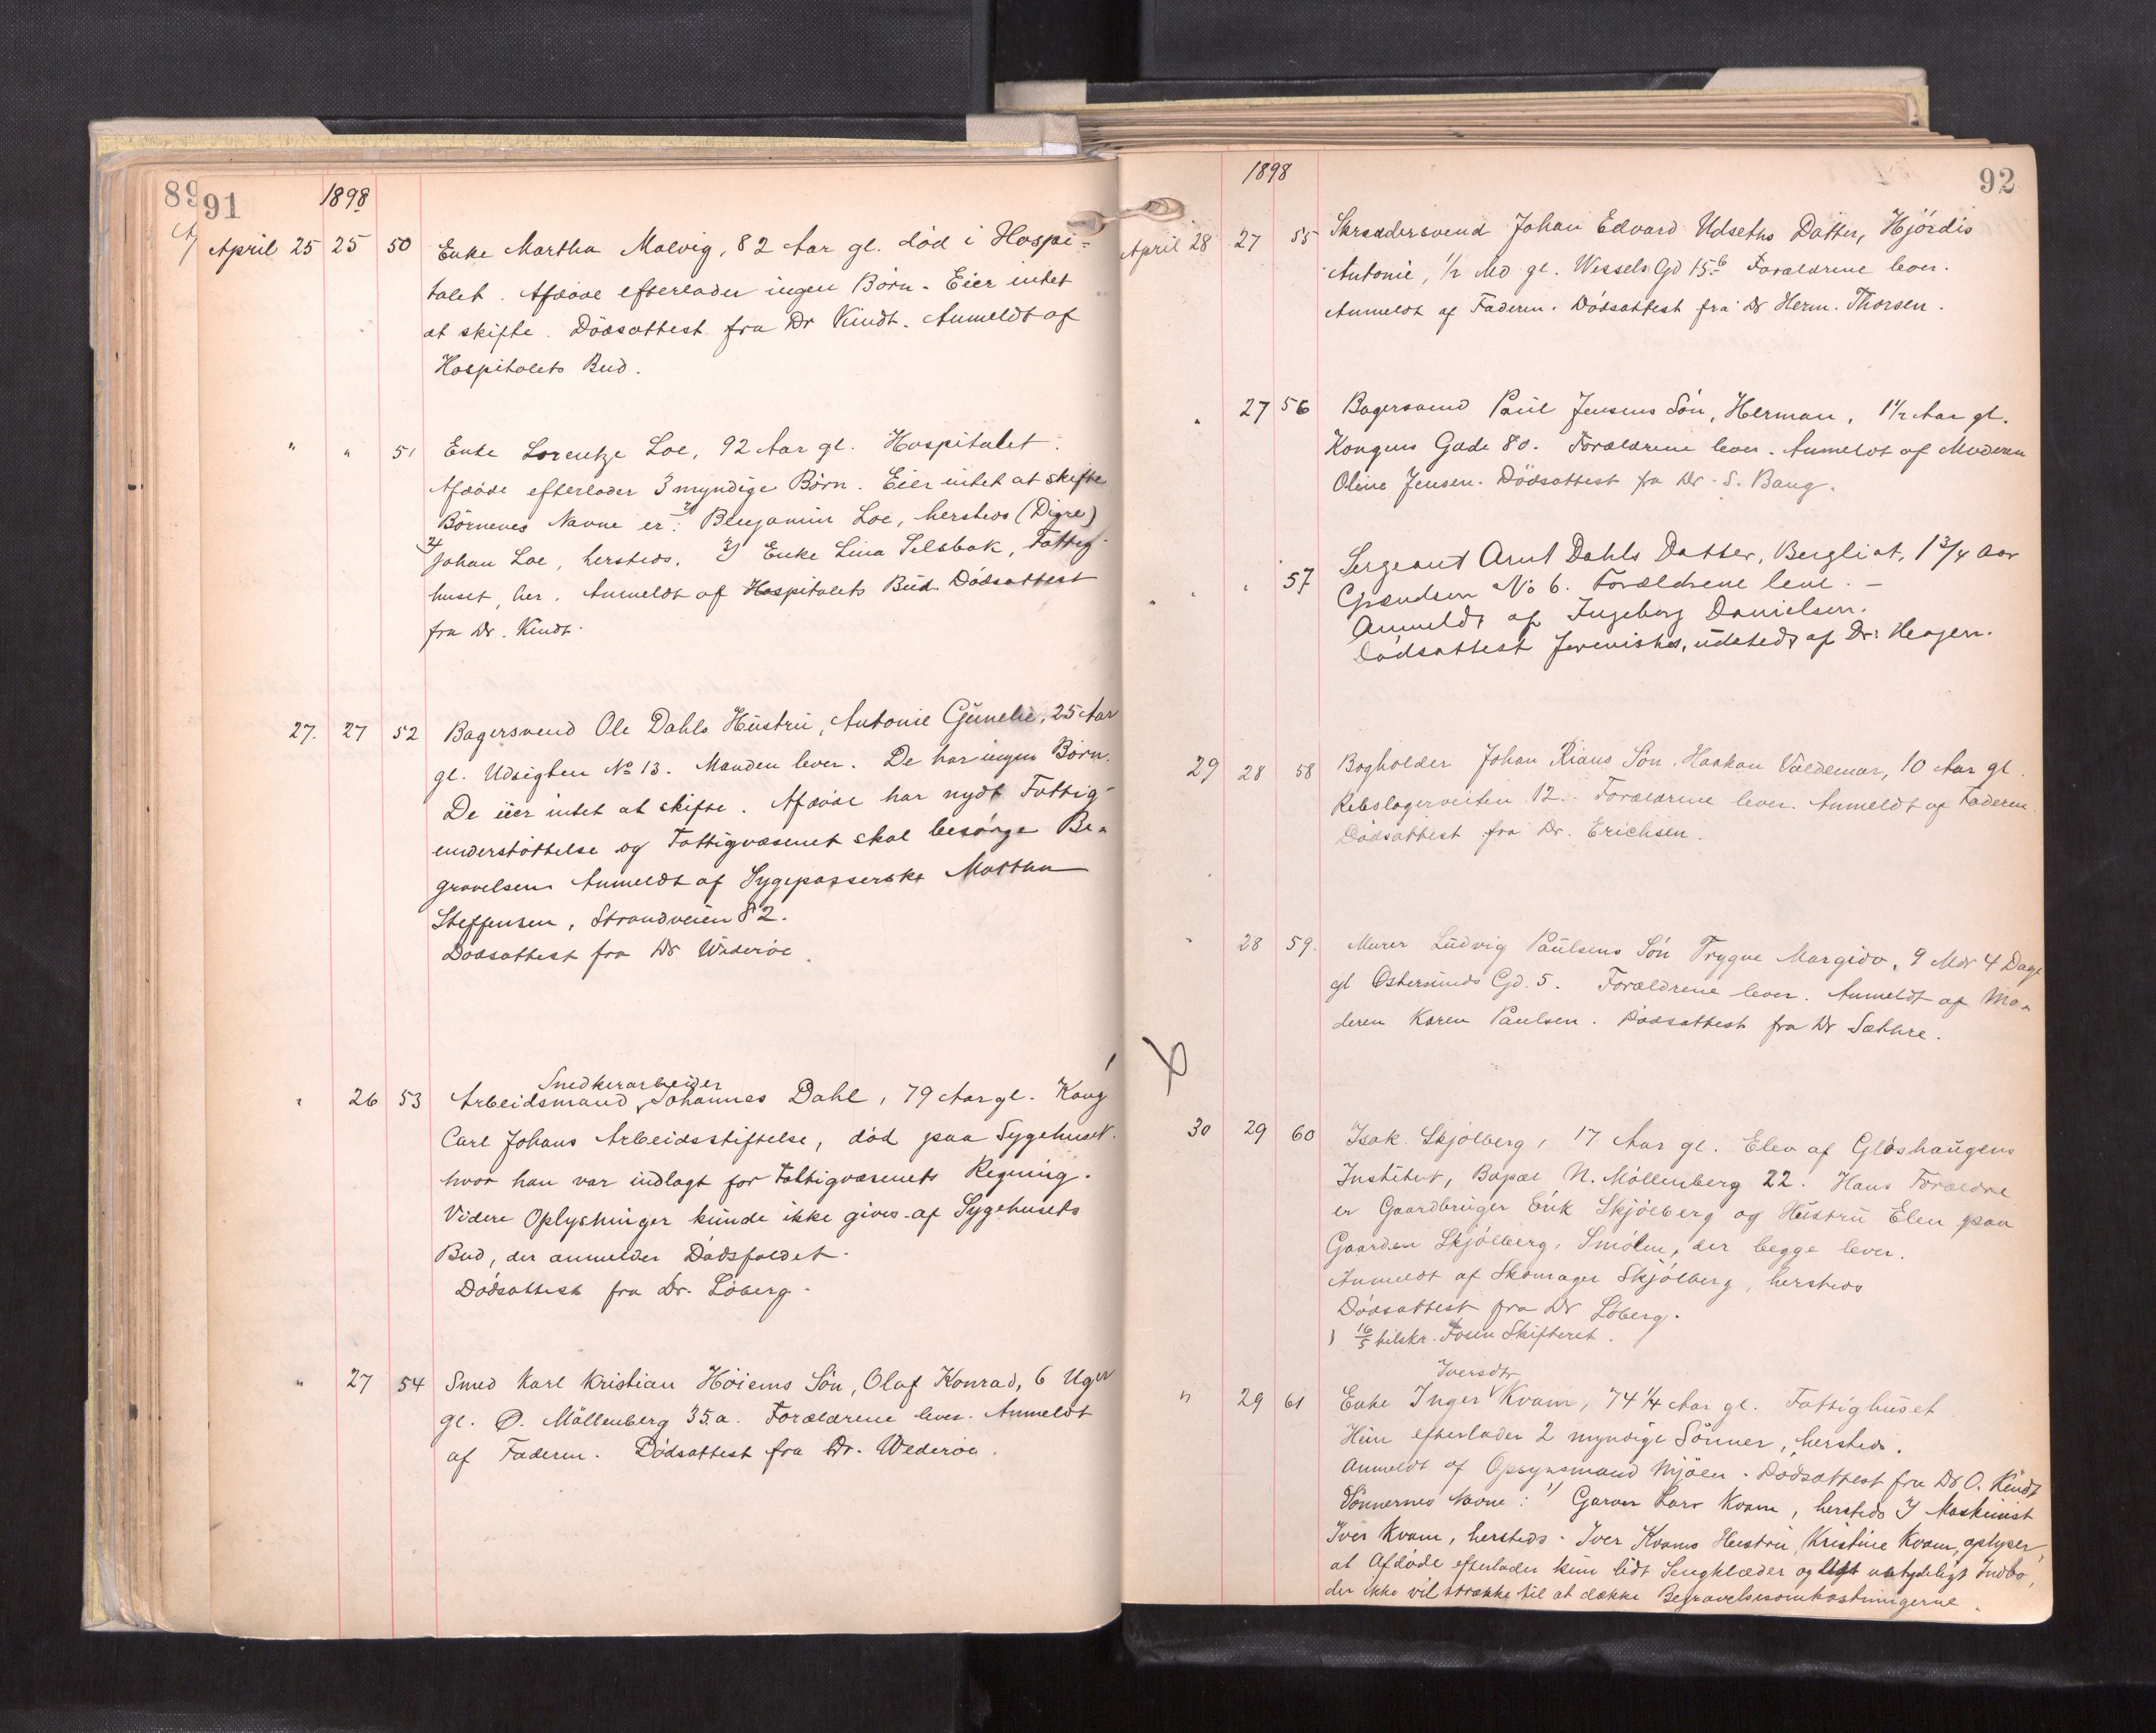 89
91
1898
April 25 25 50 Enke Martha Malvig, 82 Aar gl. død i Hospi=
talet. Afdøde efterlader ingen Børn. Eier intet
at skifte. Dödsattest fra Dr Kindt. Anmeldt af
Hospitalets Bud.
" " 51 Enke Lorentze Loe, 92 Aar gl. Hospitalet.
Afdøde efterlader 3 myndige Børn. Eier intet at skifte
Börnenes Navne er: 1) Benjamin Loe, hersteds (Digre)
2) Johan Loe, hersteds. 3) Enke Lina Selsbak, Fattig-
huset, her. Anmeldt af Hospitalets Bud. Dödsattest
fra Dr. Kindt.
27. 27 52 Bagersvend Ole Dahls Hustru, Antonie Gunelie, 25 Aar
gl. Udsigten No 13. Manden lever. De har ingen Börn.
De eier intet at skifte. Afdøde har nydt Fattig-
understöttelse og Fattigvæsenet skal besörge Be-
gravelsen. Anmeldt af Sygepasserske Martha
Steffensen, Strandveien 82.
Dödsattest fra Dr Wideröe.
" 26 53 Arbeidsmand, Snedkerarbeider Johannes Dahl, 79 Aar gl. Kong
Carl Johans Arbeidsstiftelse, död paa Sygehuset.
hvor han var indlagt for Fattigvæsenets Regning.
Videre Oplysninger kunde ikke gives af Sygehusets
Bud, der anmelder Dödsfaldet.
Dödsattest fra Dr. Löberg.
" 27 54 Smed Karl Kristian Höiems Sön, Olaf Konrad, 6 Uger
gl. Ø. Möllenberg 35.a. Forældrene lever. Anmeldt
af Faderen. Dödsattest fra Dr. Wideröe.
92
1898
April 28 27 55 Skræddersvend Johan Edvard Udseths Datter, Hjördis
Antonie, 1/2 Md gl. Wessels Gd 15 b Forældrene lever.
Anmeldt af Faderen. Dödsattest fra Dr Herm. Thorsen.
" 27 56 Bagersvend Paul Jensens Sön, Herman, 1 1/2 Aar gl.
Kongens Gade 80. Forældrene lever. Anmeldt af Moderen
Oline Jensen. Dödsattest fra Dr. S. Bang.
" " 57 Sergeant Arnt Dahls Datter, Bergliot, 1 3/4 Aar
Grændsen No 6. Forældrene leve. -
Anmeldt af Ingeborg Danielsen.
Dödsattest forevistes, udstedt af Dr: Hagen.
29 28 58 Bogholder Johan Kiaus Sön, Haakon Valdemar, 10 Aar gl.
Rebslagerveiten 12. Forældrene lever. Anmeldt af Faderen.
Dödsattest fra Dr. Erichsen.
" 28 59. Murer Ludvig Paulsens Sön Trygve Margido, 9 Mdr 4 Dage
gl Ostersunds Gd. 5. Forældrene lever. Anmeldt af Mo-
deren Karen Paulsen. Dödsattest fra Dr Sæthre.
30 29 60 Isak Skjölberg, 17 Aar gl. Elev af Glöshaugens
Institut, Bopæl N. Möllenberg 22. Hans Forældre
er Gaardbruger Erik Skjölberg og Hustru Elen paa
Gaarden Skjölberg, Smölen, der begge lever.
Anmeldt af Skomager Skjölberg, hersteds
Dödsattest fra Dr Löberg.
) 16/5 tilskr. Fosen Skifteret.
" 29 61 Enke Inger Iversdtr Kvam, 74 1/4 Aar gl. Fattighuset
Hun efterlader 2 myndige Sönner, hersteds.
Anmeldt af Opsynsmand Mjöen. Dödsattest fra Dr O. Kindt
Sönnernes Navne: 1) Garver Lars Kvam, hersteds 2) Maskinist
Iver Kvam, hersteds. Iver Kvams Hustru, Kristine Kvam, oplyser,
at Afdöde efterlader kun lidt Sengklæder og ubetydeligt Indbo,
der ikke vil strække til at dække Begravelsesomkostningerne.